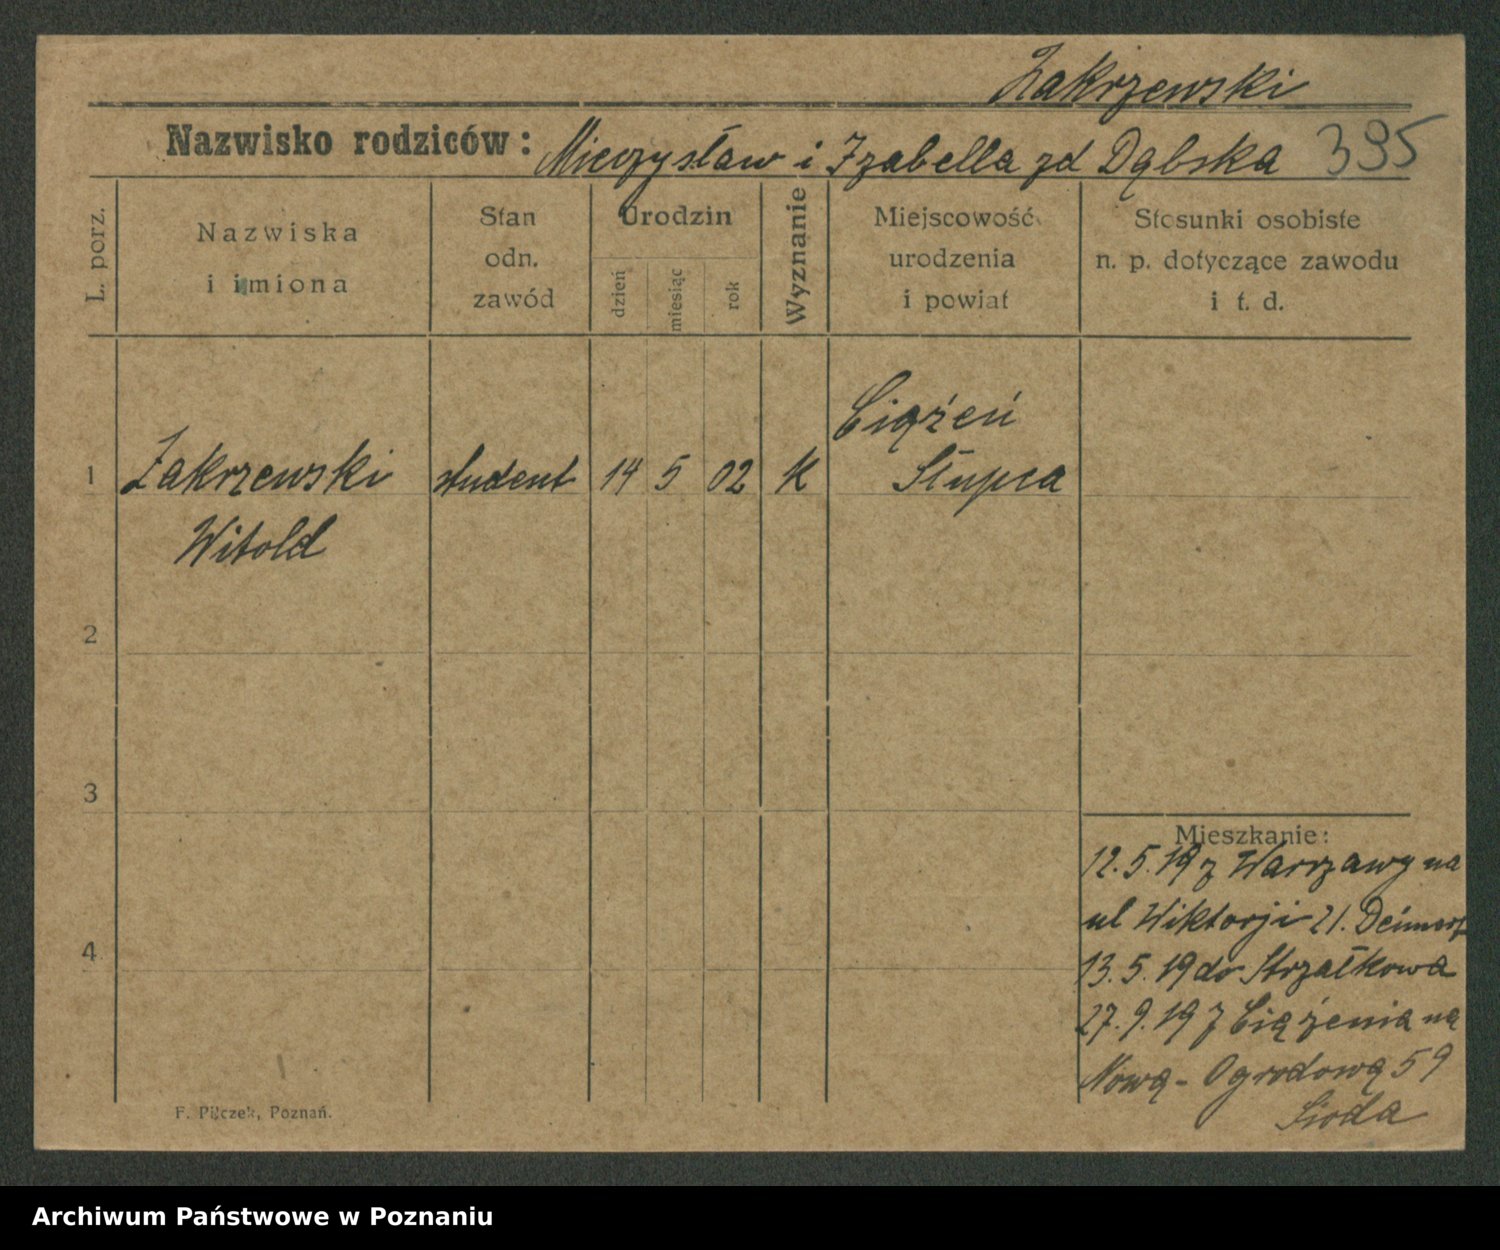 Zakrzewski
Nazwisko rodziców: Mieczysław i Izabella zd Dąbska 395
L. porz.
Nazwiska
i imiona
Stan
odn.
zawód
Urodzin
dzień
miesiąc
rok
Wyznanie
Miejscowość
urodzenia
i powiat
Stosunki osobiste
n. p. dotyczące zawodu
i t. d.
Ciążeń
1 Zakrzewski student 14 5 02 k Słupca
Witold
2
3
Mieszkanie:
12.5.19 z Warszawy na
ul Wiktorji 21.
13.5.19 do Strzałkowa
4
27.9.19 z Ciążenia na
Nową-Ogrodową 59
F. Pilczek, Poznań.
Archiwum Państwowe w Poznaniu